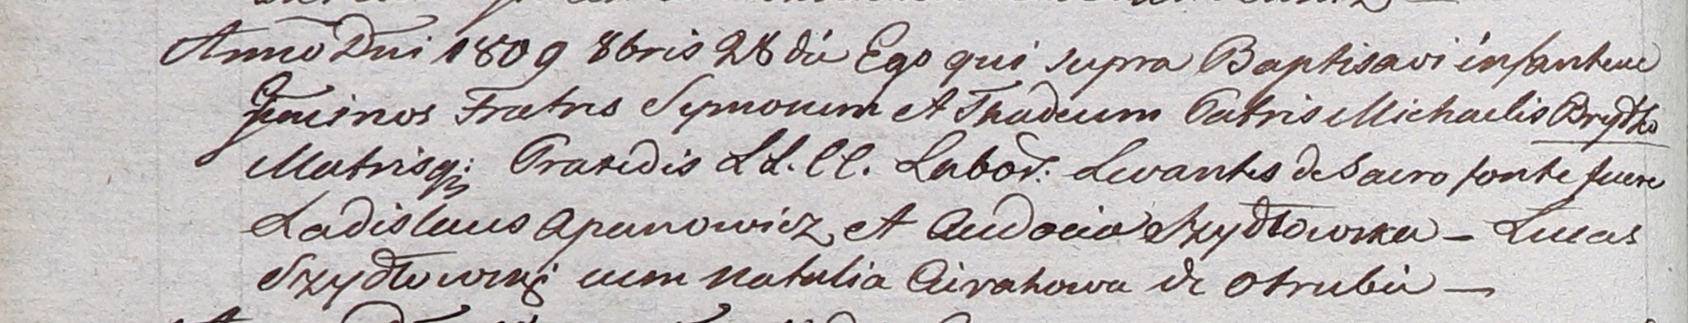 Anno Dni 1809 8bris 28 die Ego qui supra Baptisavi infantem
Geminos Fratres Symonem et Thadeum Patris Michaelis Brydko
Matrisq; Praxedis LL. CC. Labor: Levantes de Sacro fonte fuere
Ladislaus Apanowicz et Audocia Szydłowska – Lucas
Szydłowski cum Natalia de Otrubii –